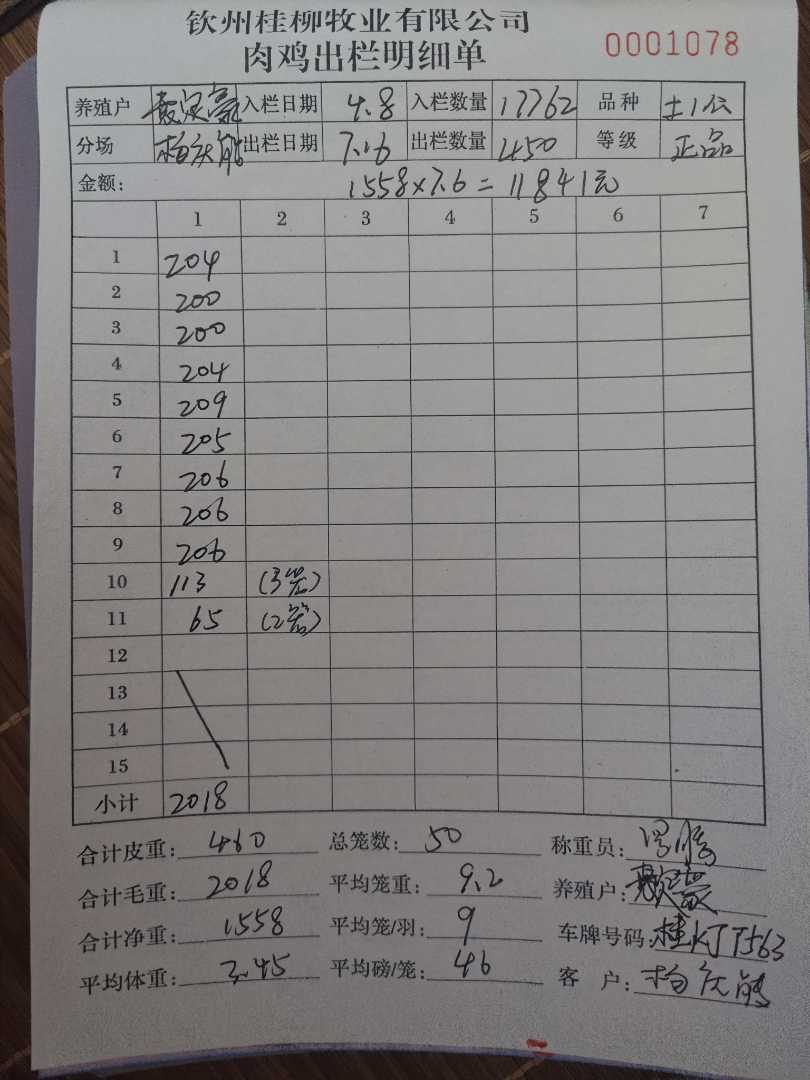 钦州桂柳牧业有限公司
肉鸡出栏明细单 0001078
养殖户 入栏日期 4.8 入栏数量 17762 品种 土1公
分场 杨庆能 出栏日期 7.16 出栏数量 450 等级 正品
金额: 1558×7.6=11841元
1 2 3 4 5 6 7
1 204
2 200
3 200
4 204
5 209
6 205
7 206
8 206
9 206
10 113 (3笼)
11 65 (2笼)
12
13
14
15
小计 2018
合计皮重: 460 总笼数: 50 称重员:
合计毛重: 2018 平均笼重: 9.2 养殖户:
合计净重: 1558 平均笼/羽: 9 车牌号码: 桂KJT563
平均体重: 3.45 平均磅/笼: 46 客 户: 杨庆能